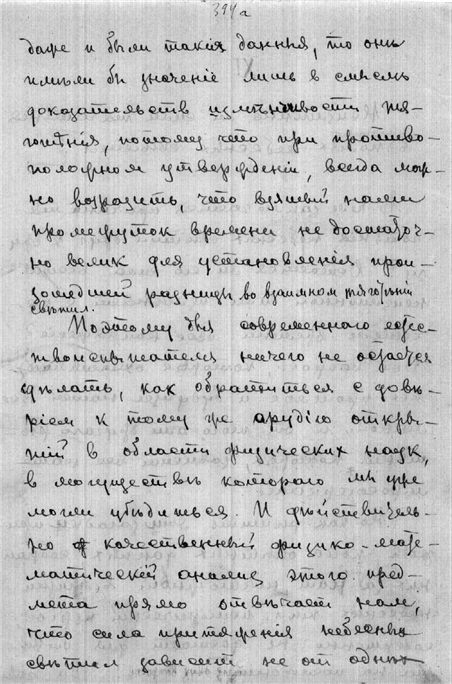 394а
даже и были такія данныя, то онѣ
имѣли бы значеніе лишь в смыслѣ
доказательств измѣнчивости тя-
готѣнія, потому что при противо-
положном утвержденіи, всегда мож-
но возразить, что взятый нами
промежуток времени не достаточ-
но велик для установленія прои-
зошедшей разницы во взаимном тяготѣніи
свѣтил.
Поэтому для современнаго есте-
ствоиспытателя ничего не остается
сдѣлать, как обратиться с довѣ-
ріем к тому же орудію откры-
тій в области физических наук,
в могуществѣ котораго мы уже
могли убѣдиться. И дѣйствитель-
но качественный физико-мате-
матическій анализ этого пред-
мета прямо отвѣчает нам,
что сила притяженія небесных
свѣтил зависит не от одних